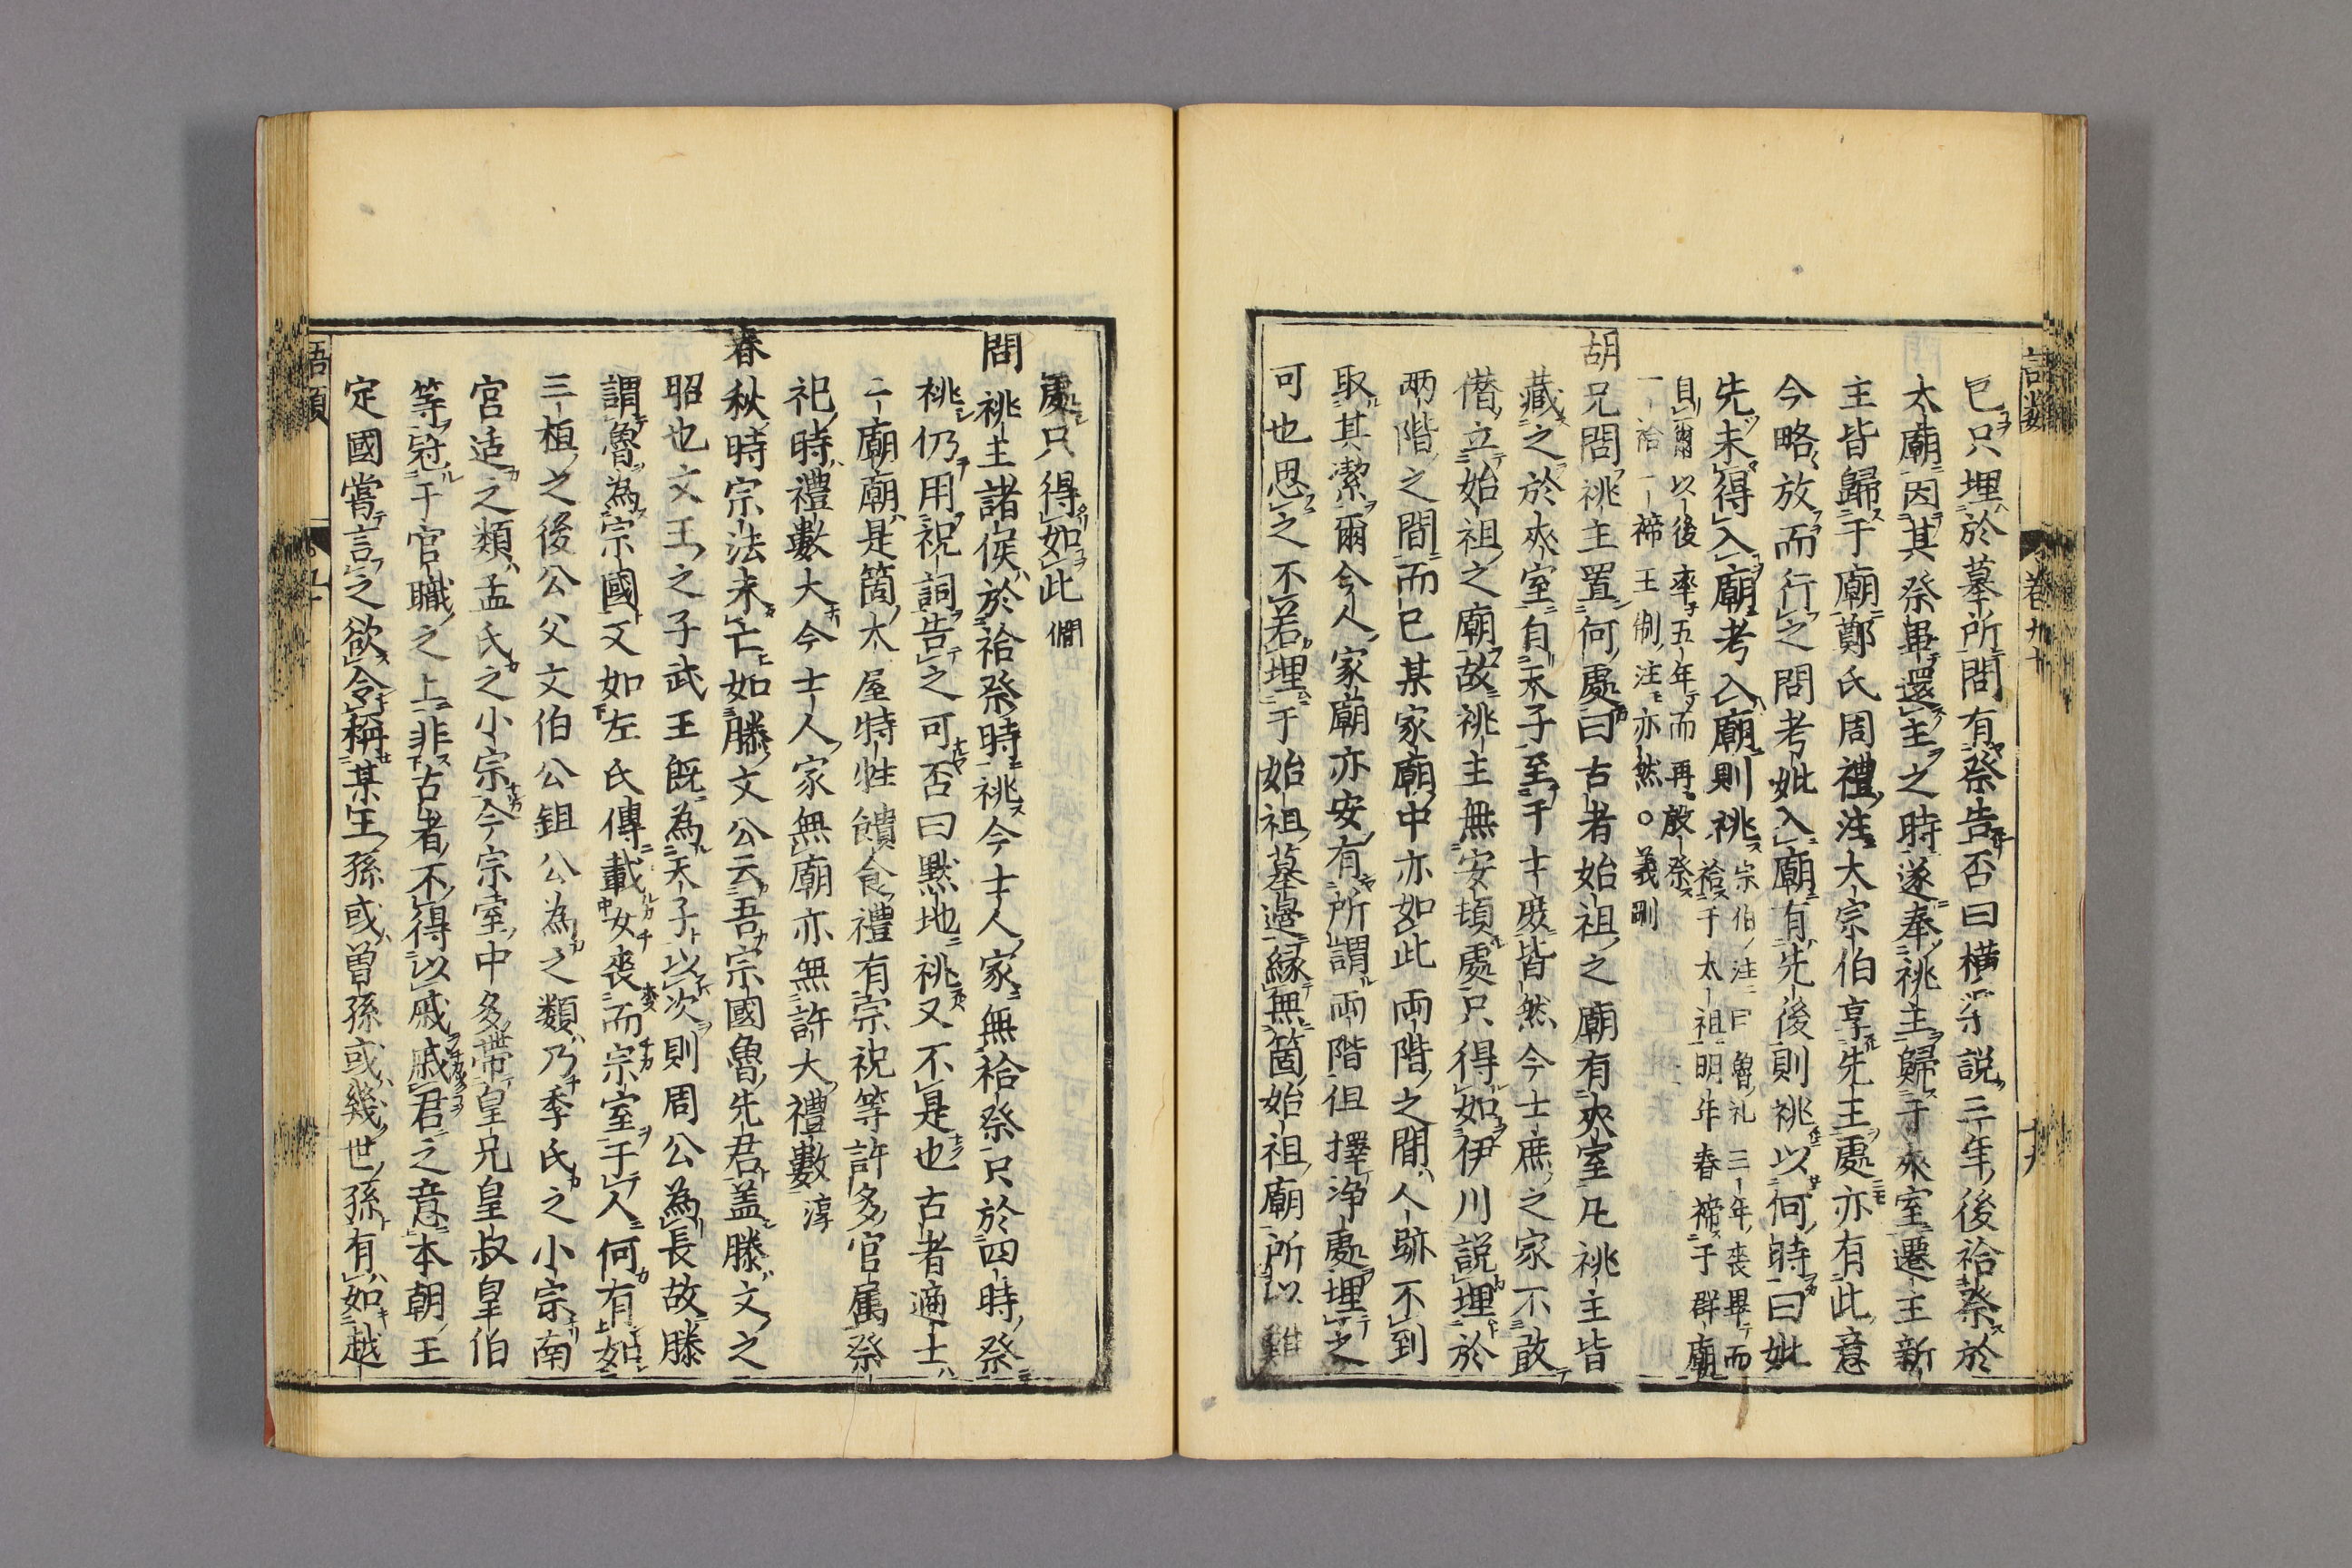 語類 卷九十 十九
已只埋於墓所問有祭告否曰横渠説三年後祫祭於
太廟因其祭畢還主之時遂奉祧主歸于夾室遷主新
主皆歸于廟鄭氏周禮注大宗伯享先王處亦有此意
今略放而行之問考妣入廟有先後則祧以何時曰妣
先未得入廟考入廟則祧宗伯注曰魯礼三年喪畢而
祫于太祖明年春禘于群廟
自爾以後率五年而再殷祭
一祫一禘王制注亦然○義剛
胡兄問祧主置何處曰古者始祖之廟有夾室凡祧主皆
藏之於夾室自天子至于士庶皆然今士庶之家不敢
僭立始祖之廟故祧主無安頓處只得如伊川説埋於
两階之間而已某家廟中亦如此兩階之間人跡不到
取其潔爾今人家廟亦安有所謂兩階但擇浄處埋之
可也思之不若埋于始祖墓邊縁無箇始祖廟所以難
處只得如此 僩
問祧主諸侯於祫祭時祧今士人家無祫祭只於四時祭
祧仍用祝詞告之可否曰黙地祧又不是也古者適士
二廟廟是箇大屋特牲饋食禮有宗祝等許多官属祭
祀時禮數大今士人家無廟亦無許大禮數 淳
春秋時宗法未亡如滕文公云吾宗國魯先君盖滕文之
昭也文王之子武王既為天子以次則周公為長故滕
謂魯為宗國又如左氏傳載女喪而宗室于人何有如
三桓之後公父文伯公鉏公為之類乃季氏之小宗南
宮适之類孟氏之小宗今宗室中多帶皇兄皇叔皇伯
等冠于官職之上非古者不得以戚戚君之意本朝王
定國嘗言之欲令稱某王孫或曽孫或幾世孫有如越
語類